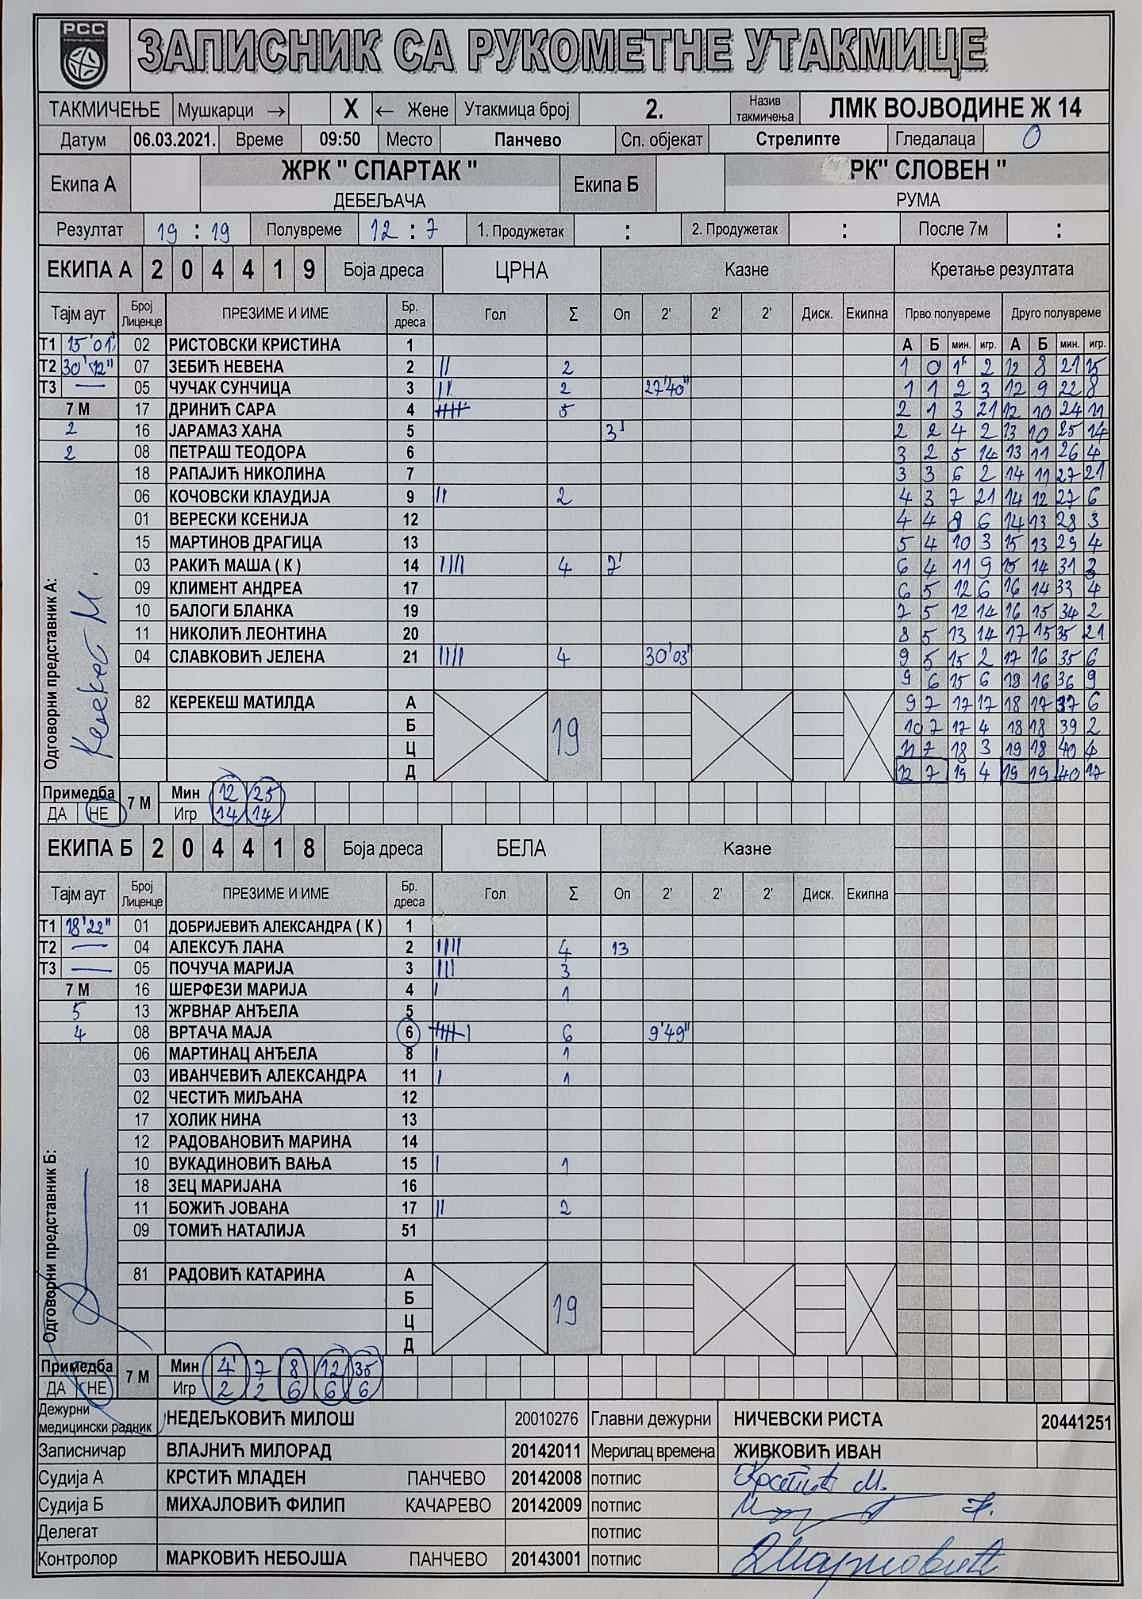 РСС
ЗАПИСНИК СА РУКОМЕТНЕ УТАКМИЦЕ
ТАКМИЧЕЊЕ Мушкарци → X ← Жене Утакмица број 2. Назив такмичења ЛМК ВОЈВОДИНЕ Ж 14
Датум 06.03.2021. Време 09:50 Место Панчево Сп. објекат Стрелиште Гледалаца 0
Екипа А ЖРК " СПАРТАК " Екипа Б РК" СЛОВЕН "
ДЕБЕЉАЧА РУМА
Резултат 19 : 19 Полувреме 12 : 7 1. Продужетак : 2. Продужетак : После 7м :
ЕКИПА А 2 0 4 4 1 9 Боја дреса ЦРНА Казне Кретање резултата
Тајм аут Број Лиценце ПРЕЗИМЕ И ИМЕ Бр. дреса Гол Σ Оп 2' 2' 2' Диск. Екипна Прво полувреме Друго полувреме
Т1 15'01" 02 РИСТОВСКИ КРИСТИНА 1 А Б мин. игр. А Б мин. игр.
Т2 30'12" 07 ЗЕБИЋ НЕВЕНА 2 || 2 1 0 1' 2 12 8 21 15
Т3 — 05 ЧУЧАК СУНЧИЦА 3 || 2 27'40" 1 1 2 3 12 9 22 8
7 М 17 ДРИНИЋ САРА 4 5 2 1 3 21 12 10 24 11
2 16 ЈАРАМАЗ ХАНА 5 3' 2 2 4 2 13 10 25 14
2 08 ПЕТРАШ ТЕОДОРА 6 3 2 5 14 13 11 26 4
18 РАПАЈИЋ НИКОЛИНА 7 3 3 6 2 14 11 27 21
06 КОЧОВСКИ КЛАУДИЈА 9 || 2 4 3 7 21 14 12 27 6
01 ВЕРЕСКИ КСЕНИЈА 12 4 4 8 6 14 13 28 3
15 МАРТИНОВ ДРАГИЦА 13 5 4 10 3 15 13 29 4
03 РАКИЋ МАША ( К ) 14 |||| 4 7' 6 4 11 9 15 14 31 3
09 КЛИМЕНТ АНДРЕА 17 6 5 12 6 16 14 33 4
10 БАЛОГИ БЛАНКА 19 7 5 12 14 16 15 34 2
11 НИКОЛИЋ ЛЕОНТИНА 20 8 5 13 14 17 15 35 21
04 СЛАВКОВИЋ ЈЕЛЕНА 21 |||| 4 30'03" 9 5 15 2 17 16 35 6
9 6 15 6 18 16 36 9
82 КЕРЕКЕШ МАТИЛДА А 19 9 7 17 17 18 17 37 6
Б 10 7 17 4 18 18 39 2
Ц 11 7 18 3 19 18 40 4
Д 12 7 19 4 19 19 40 17
Одговорни представник А:
Керекеш М.
Примедба 7 М Мин 12 25
ДА НЕ Игр 14 14
ЕКИПА Б 2 0 4 4 1 8 Боја дреса БЕЛА Казне
Тајм аут Број Лиценце ПРЕЗИМЕ И ИМЕ Бр. дреса Гол Σ Оп 2' 2' 2' Диск. Екипна
Т1 18'22" 01 ДОБРИЈЕВИЋ АЛЕКСАНДРА ( К ) 1
Т2 — 04 АЛЕКСУЋ ЛАНА 2 |||| 4 13
Т3 — 05 ПОЧУЧА МАРИЈА 3 ||| 3
7 М 16 ШЕРФЕЗИ МАРИЈА 4 | 1
5 13 ЖРВНАР АНЂЕЛА 5
4 08 ВРТАЧА МАЈА 6 6 9'49"
06 МАРТИНАЦ АНЂЕЛА 8 | 1
03 ИВАНЧЕВИЋ АЛЕКСАНДРА 11 | 1
02 ЧЕСТИЋ МИЉАНА 12
17 ХОЛИК НИНА 13
12 РАДОВАНОВИЋ МАРИНА 14
10 ВУКАДИНОВИЋ ВАЊА 15 | 1
18 ЗЕЦ МАРИЈАНА 16
11 БОЖИЋ ЈОВАНА 17 || 2
09 ТОМИЋ НАТАЛИЈА 51
81 РАДОВИЋ КАТАРИНА А 19
Б
Ц
Д
Одговорни представник Б:
Примедба 7 М Мин 4' 7 8 12 35
ДА НЕ Игр 2 2 6 6 6
Дежурни медицински радник НЕДЕЉКОВИЋ МИЛОШ 20010276 Главни дежурни НИЧЕВСКИ РИСТА 20441251
Записничар ВЛАЈНИЋ МИЛОРАД 20142011 Мерилац времена ЖИВКОВИЋ ИВАН
Судија А КРСТИЋ МЛАДЕН ПАНЧЕВО 20142008 потпис Крстић М.
Судија Б МИХАЈЛОВИЋ ФИЛИП КАЧАРЕВО 20142009 потпис
Делегат потпис
Контролор МАРКОВИЋ НЕБОЈША ПАНЧЕВО 20143001 потпис